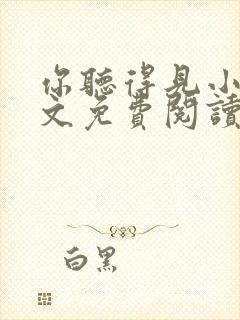 你聽得見小
文免費閱讀
白黑